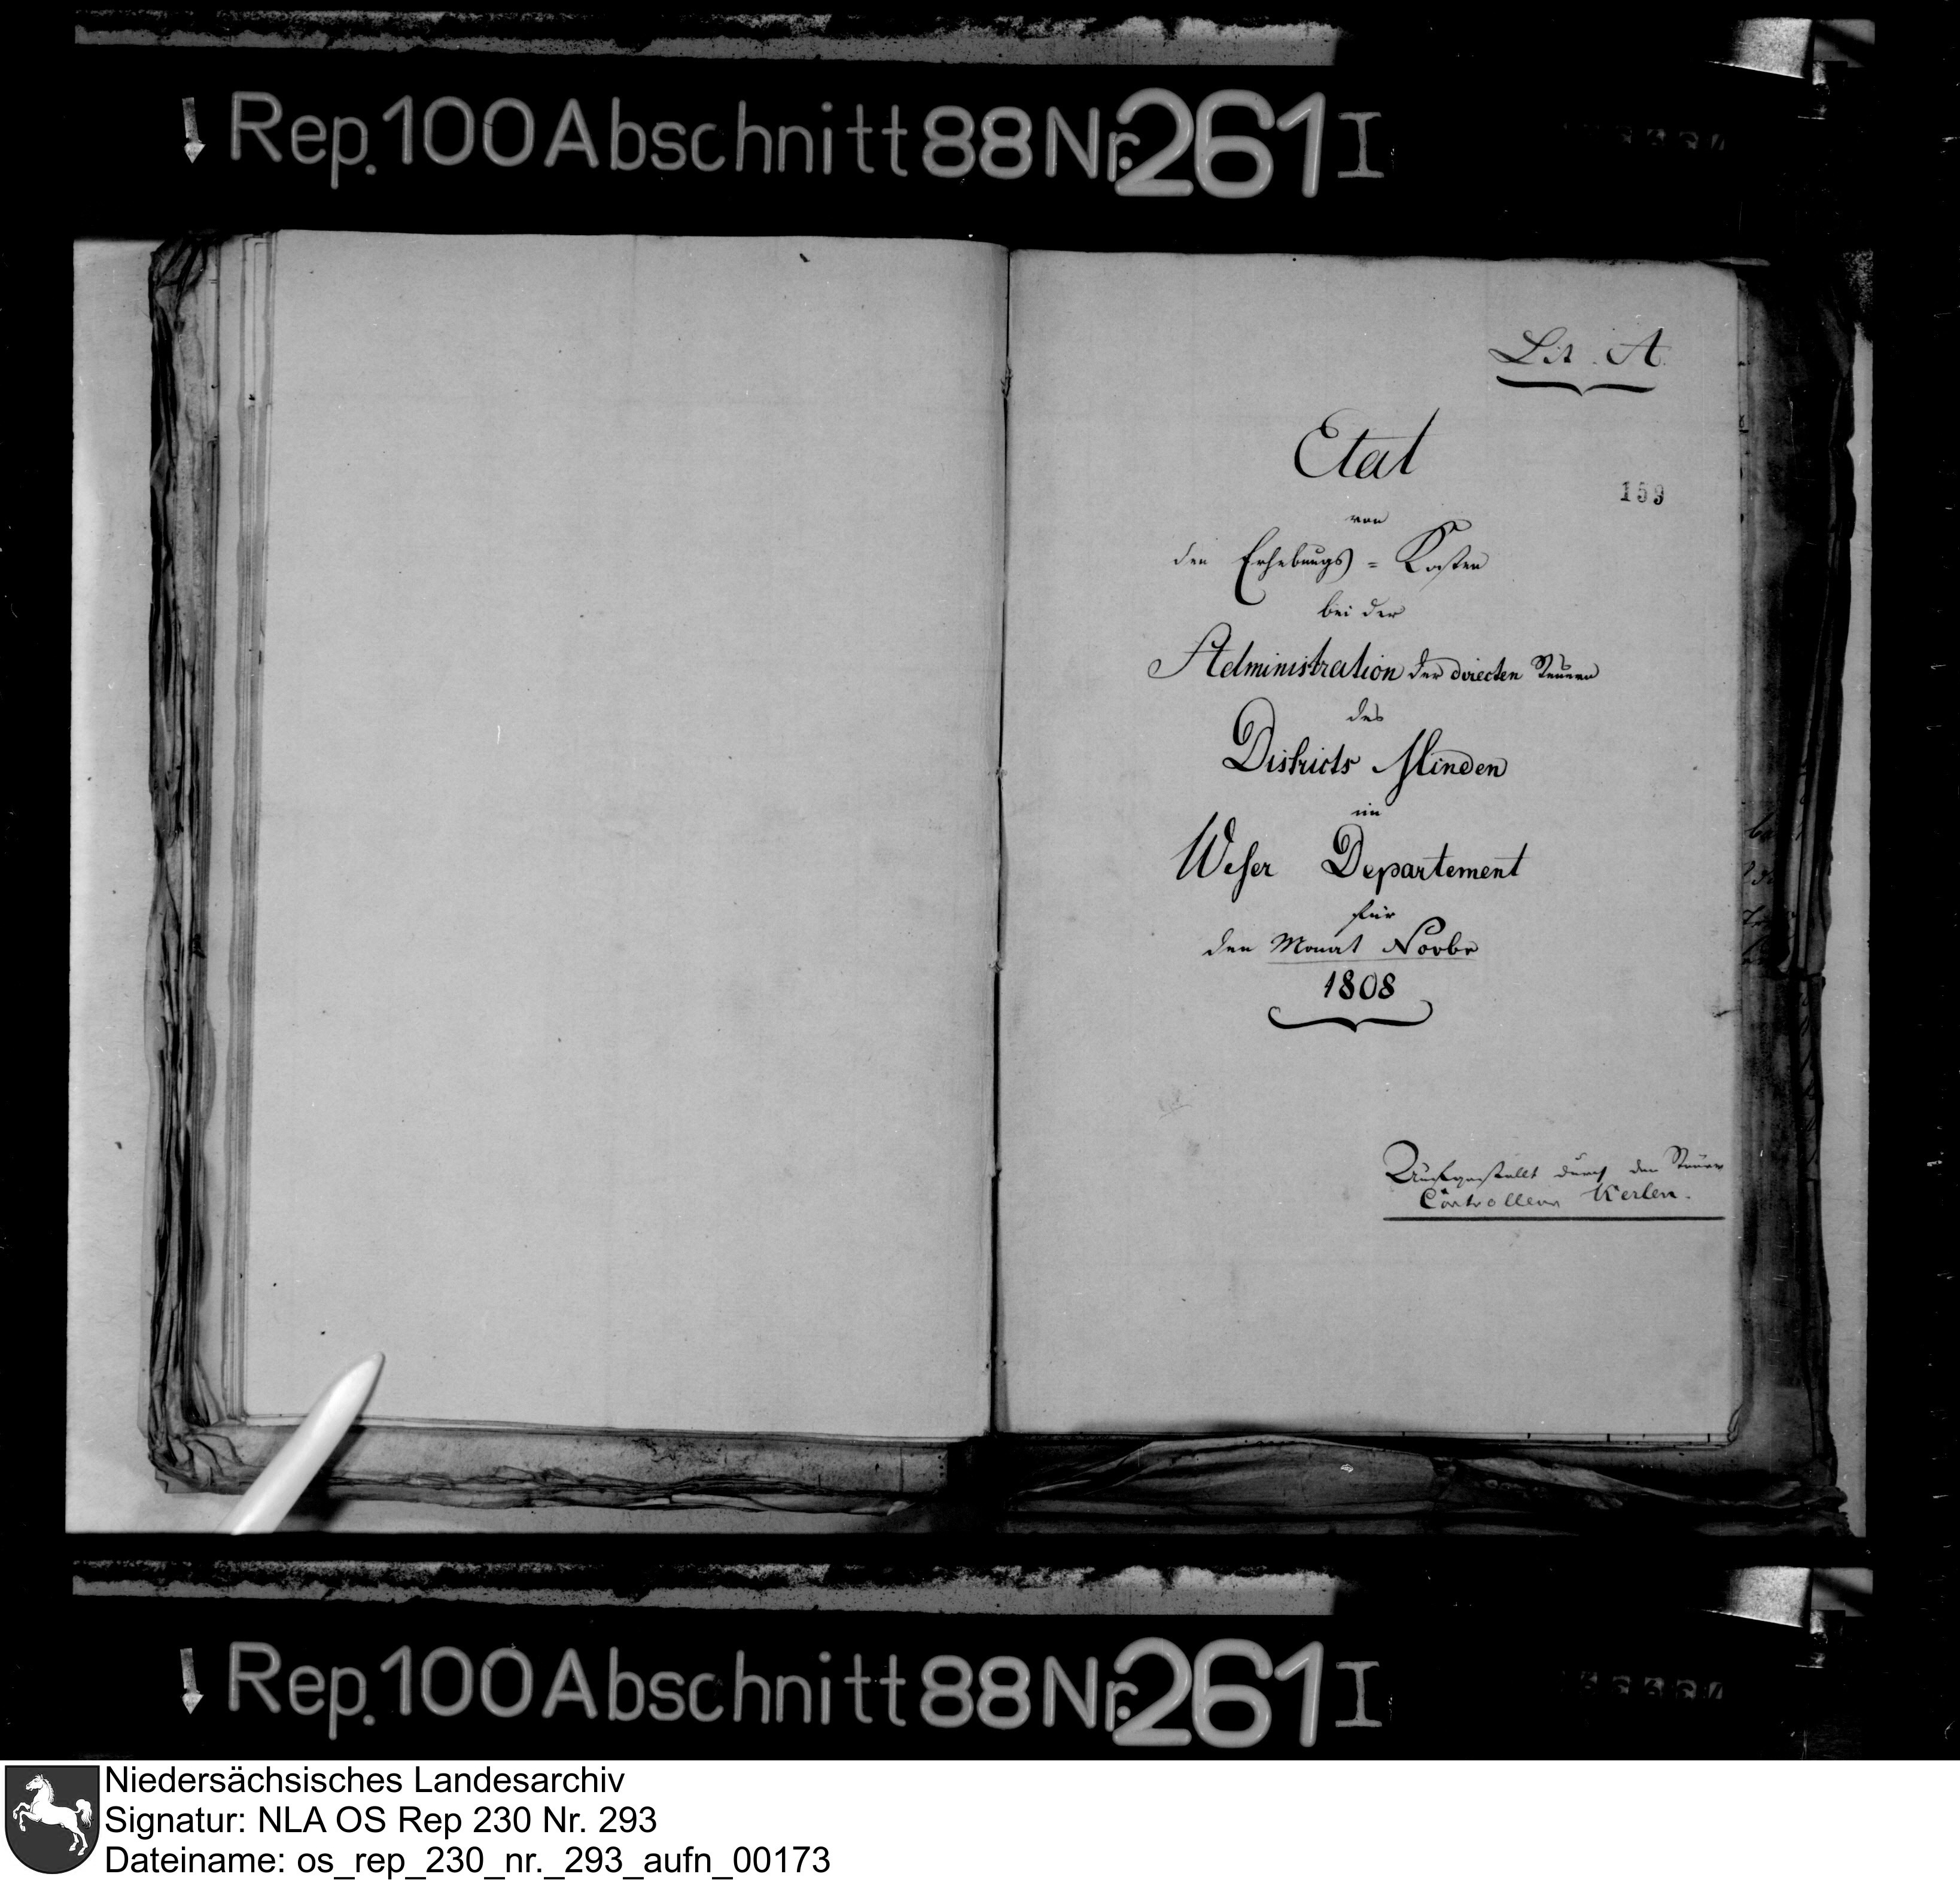 Rep. 100 Abschnitt 88 Nr. 261 I
Lit. A.
Etat
159
von
den Erhebungs = Kosten
bei der
Administration der directen Steuern
des
Districts Minden
im
Weser Departement
für
den Monat Novbr
1808
Aufgestellt durch den Steuer
Controlleur Kerlen.
Rep. 100 Abschnitt 88 Nr. 261 I
Niedersächsisches Landesarchiv
Signatur: NLA OS Rep 230 Nr. 293
Dateiname: os_rep_230_nr._293_aufn_00173